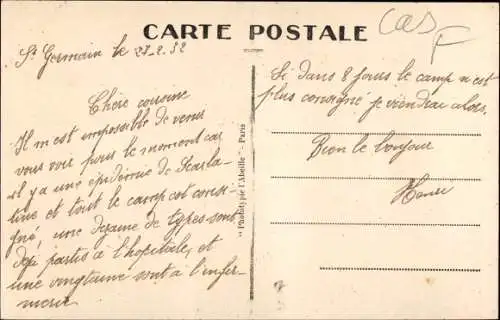 CARTE POSTALE
Cas
F
St Germain le 27.2.32
Chère cousine
Il m'est impossible de venir
vous voir pour le moment car
il y a une épidémie de Scarla-
tine et tout le camp est consi-
gné, une dizaine de types sont
déjà partis à l'hopitale, et
une vingtaine sont à l'infir-
merie
"Phototypie l'Abeille" - Paris
Si dans 8 jours le camp n'est
plus consigné je viendrai alors.
Bien le bonjour
Henri